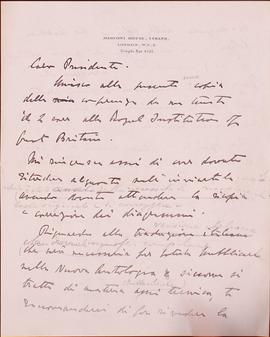 MARCONI HOUSE, STRAND,
LONDON, W.C.2.
Temple Bar 4321.
Caro Presidente.
Unisco alla presente copia
della mia conferenza da me tenuta
il 2 corr alla Royal Institution of
Great Britain.
Mi rincresce assai di aver dovuto
ritardare alquanto nell'inviarla
avendo dovuto attendere la
e correzione dei diagrammi.
Riguardo alla traduzione italiana
che sarà necessaria per poterla pubblicare
nella Nuova Antologia e siccome si
tratta di materia assai tecnica, ti
raccomanderei di far rivedere la